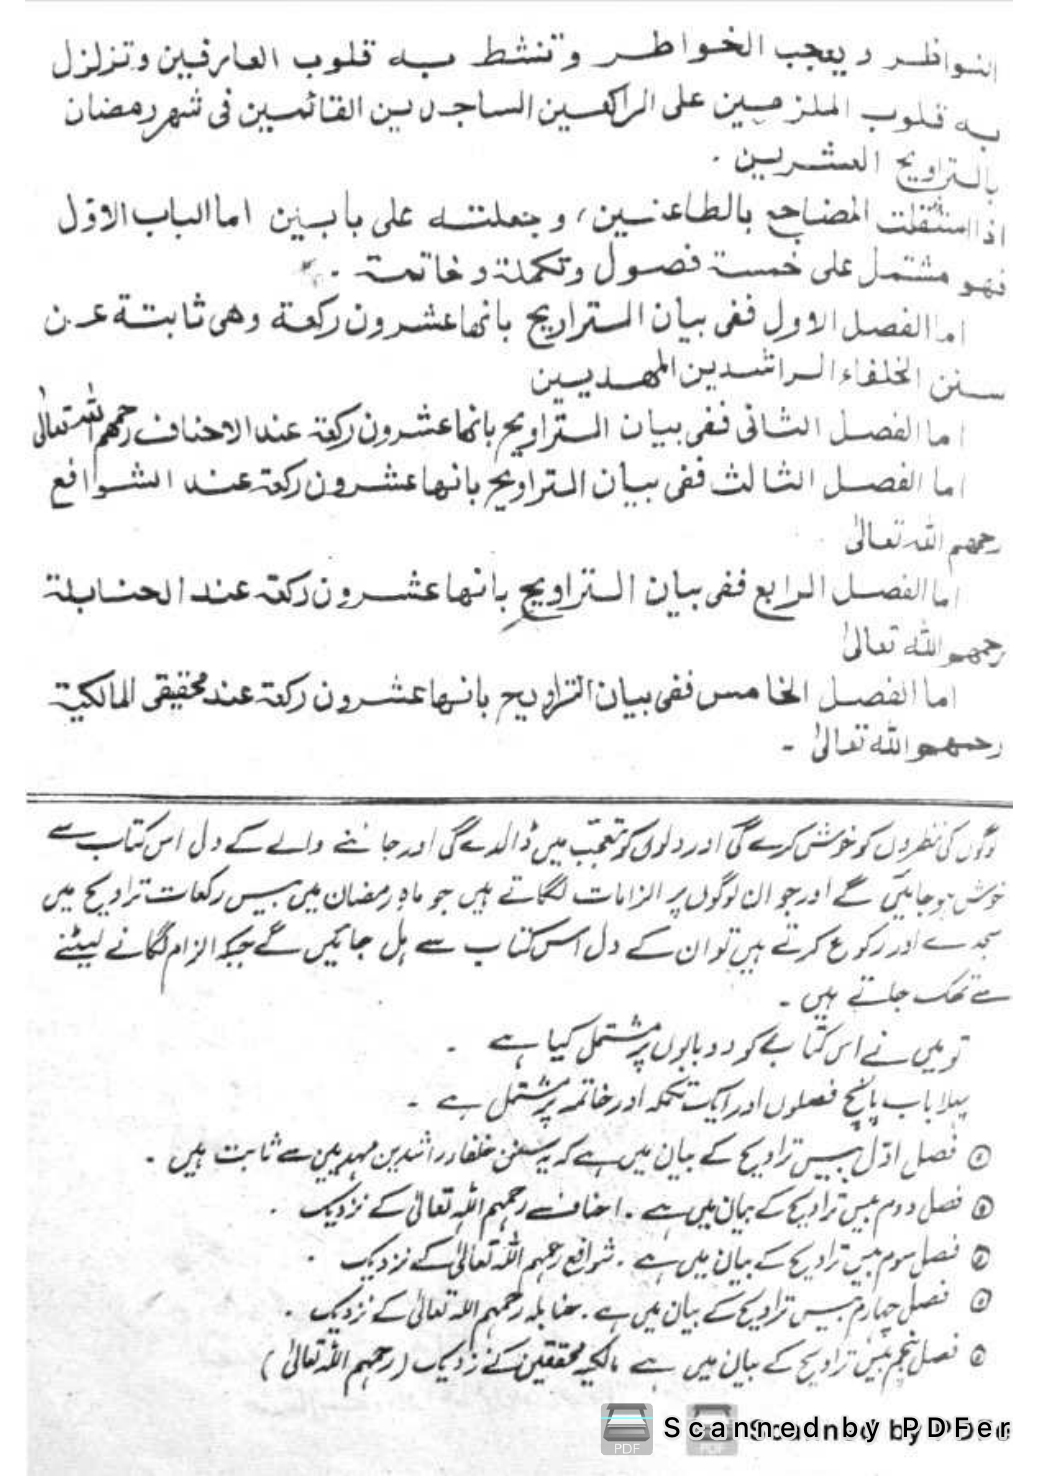 النواظر ويعجب الخواطر وتنشط به قلوب العارفين وتزلزل
به قلوب الملزمين على الراكعين الساجدين القائمين فى شهر رمضان
بالتراويح العشرين .
اذا استثقلت المضاجع بالطاعنين، وجعلته على بابين اما الباب الاوّل
فهو مشتمل على خمسة فصول وتكملة وخاتمة .
اما الفصل الاول ففى بيان التراريح بانها عشرون ركعة وهى ثابتة عن
سنن الخلفاء الراشدين المهديين
اما الفصل الثانى ففى بيان التراويح بانها عشرون ركعة عند الاحناف رحمهم الله تعالىٰ
اما الفصل الثالث ففى بيان التراويح بانها عشرون ركعة عند الشوافع
رحمهم الله تعالىٰ
اما الفصل الرابع ففى بيان التراويح بانها عشرون ركعة عند الحنابلة
رحمهم الله تعالىٰ
اما الفصل الخامس ففى بيان التراويح بانها عشرون ركعة عند محققى المالكية
رحمهم الله تعالىٰ -
لوگوں کی نظروں کو خوش کرے گی اور دلوں کو تعجّب میں ڈالدے گی اور جاننے والے کے دل اس کتاب سے
خوش ہوجائیں گے اور جو ان لوگوں پر الزامات لگاتے ہیں جو ماہِ رمضان میں بیس رکعات تراویح میں
سجدے اور رکوع کرتے ہیں تو ان کے دل اس کتاب سے ہل جائیں گے جبکہ الزام لگانے لیٹنے
سے تھک جاتے ہیں -
تو میں نے اس کتاب کو دو بابوں پر مشتمل کیا ہے -
پہلا باب پانچ فصلوں اور ایک تکملہ اور خاتمہ پر مشتمل ہے -
۱ فصل اوّل بیس تراویح کے بیان میں ہے کہ یہ سنن خلفاء راشدین مہدیین سے ثابت ہیں -
۲ فصل دوم بیس تراویح کے بیان میں ہے . احناف رحمہم اللہ تعالیٰ کے نزدیک .
۳ فصل سوم بیس تراویح کے بیان میں ہے . شوافع رحمہم اللہ تعالیٰ کے نزدیک .
۴ فصل چہارم بیس تراویح کے بیان میں ہے . حنابلہ رحمہم اللہ تعالیٰ کے نزدیک .
۵ فصل پنجم بیس تراویح کے بیان میں ہے مالکیہ محققین کے نزدیک (رحمہم اللہ تعالیٰ)
Scanned by PDFer